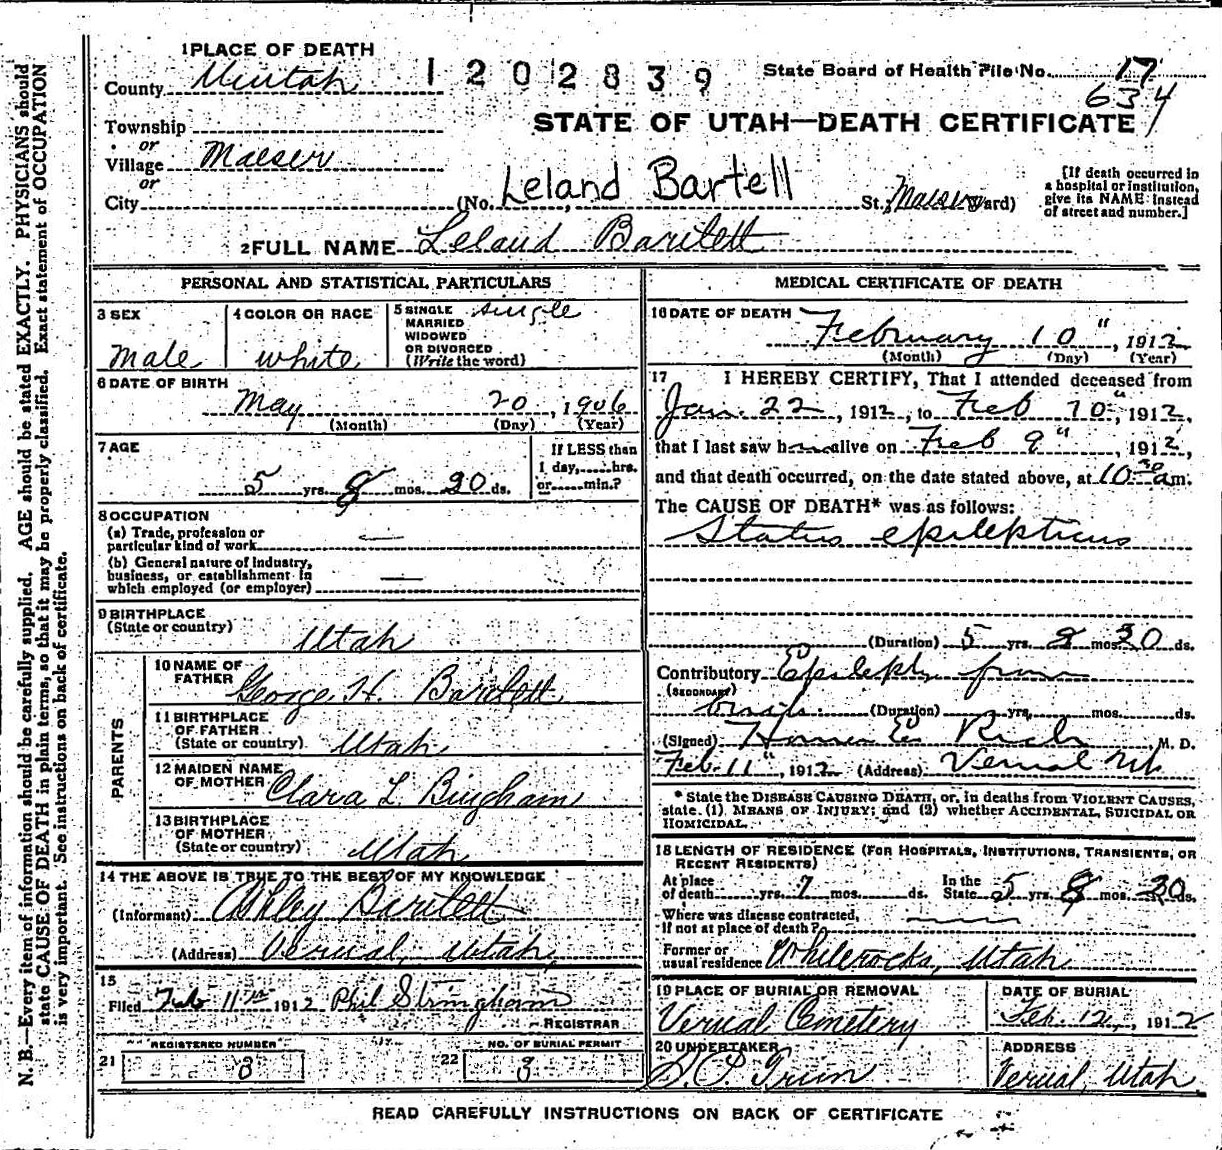 N. B.—Every item of information should be carefully supplied. AGE should be stated EXACTLY. PHYSICIANS should
state CAUSE OF DEATH in plain terms, so that it may be properly classified. Exact statement of OCCUPATION
is very important. See instructions on back of certificate.
1 PLACE OF DEATH
County Uintah
1202839
State Board of Health File No. 17
634
Township
or
Village Maeser
or
City
STATE OF UTAH—DEATH CERTIFICATE
(No. Leland Bartell St. Maeser Ward)
[If death occurred in
a hospital or institution,
give its NAME instead
of street and number.]
2 FULL NAME Leland Bartlett
PERSONAL AND STATISTICAL PARTICULARS
3 SEX
Male
4 COLOR OR RACE
White
5 SINGLE
MARRIED
WIDOWED
OR DIVORCED
(Write the word)
single
6 DATE OF BIRTH
May 20, 1906
(Month) (Day) (Year)
7 AGE
5 yrs. 8 mos. 20 ds.
If LESS than
1 day,......hrs.
or......min.?
8 OCCUPATION
(a) Trade, profession or
particular kind of work —
(b) General nature of industry,
business, or establishment in
which employed (or employer) —
9 BIRTHPLACE
(State or country)
Utah
PARENTS
10 NAME OF
FATHER
George H. Bartlett
11 BIRTHPLACE
OF FATHER
(State or country) Utah
12 MAIDEN NAME
OF MOTHER Clara L Bingham
13 BIRTHPLACE
OF MOTHER
(State or country) Utah
14 THE ABOVE IS TRUE TO THE BEST OF MY KNOWLEDGE
(Informant) Ashley Bartlett
(Address) Vernal, Utah,
15
Filed Feb 11th 1912 Phil Stringham
REGISTRAR
REGISTERED NUMBER
21 3
NO. OF BURIAL PERMIT
22 3
MEDICAL CERTIFICATE OF DEATH
16 DATE OF DEATH
February 10", 1912
(Month) (Day) (Year)
17 I HEREBY CERTIFY, That I attended deceased from
Jan. 22, 1912, to Feb 10", 1912,
that I last saw him alive on Feb 9", 1912,
and that death occurred, on the date stated above, at 10:30 am.
The CAUSE OF DEATH* was as follows:
Status epilepticus
(Duration) 5 yrs. 8 mos. 20 ds.
Contributory Epilepsy from
(SECONDARY)
(Duration) yrs. mos. ds.
(Signed) Homer E Rich M. D.
Feb. 11", 1912 (Address) Vernal Ut
* State the DISEASE CAUSING DEATH, or, in deaths from VIOLENT CAUSES,
state (1) MEANS OF INJURY; and (2) whether ACCIDENTAL, SUICIDAL OR
HOMICIDAL.
18 LENGTH OF RESIDENCE (FOR HOSPITALS, INSTITUTIONS, TRANSIENTS, OR
RECENT RESIDENTS)
At place
of death yrs. 7 mos. ds.
In the
State 5 yrs. 8 mos. 20 ds.
Where was disease contracted,
If not at place of death?
Former or
usual residence Whiterocks, Utah
19 PLACE OF BURIAL OR REMOVAL
Vernal Cemetery
DATE OF BURIAL
Feb. 12, 1912
20 UNDERTAKER
ADDRESS
Vernal, Utah
READ CAREFULLY INSTRUCTIONS ON BACK OF CERTIFICATE